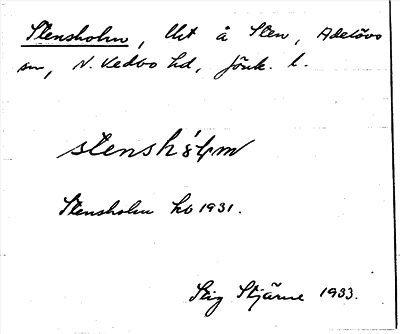 Stensholm, Ut å Sten, Adelövs
sn, N. Vedbo hd, Jönk. l.
stenshålm
Stensholm kb 1931.
Stig Stjärne 1933.